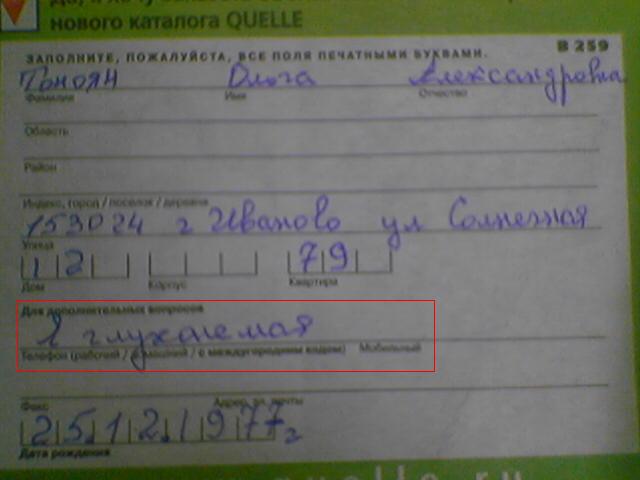 нового каталога QUELLE
В 259
ЗАПОЛНИТЕ, ПОЖАЛУЙСТА, ВСЕ ПОЛЯ ПЕЧАТНЫМИ БУКВАМИ.
Тоноян Ольга Александровна
Фамилия Имя Отчество
Область
Район
Индекс, город / поселок / деревня
153024 г Иваново ул Солнечная
Улица
12 79
Дом Корпус Квартира
Для дополнительных вопросов
Я глухонемая
Телефон (рабочий / домашний / с междугородним кодом) Мобильный
Факс Адрес эл. почты
25.12.1977г
Дата рождения